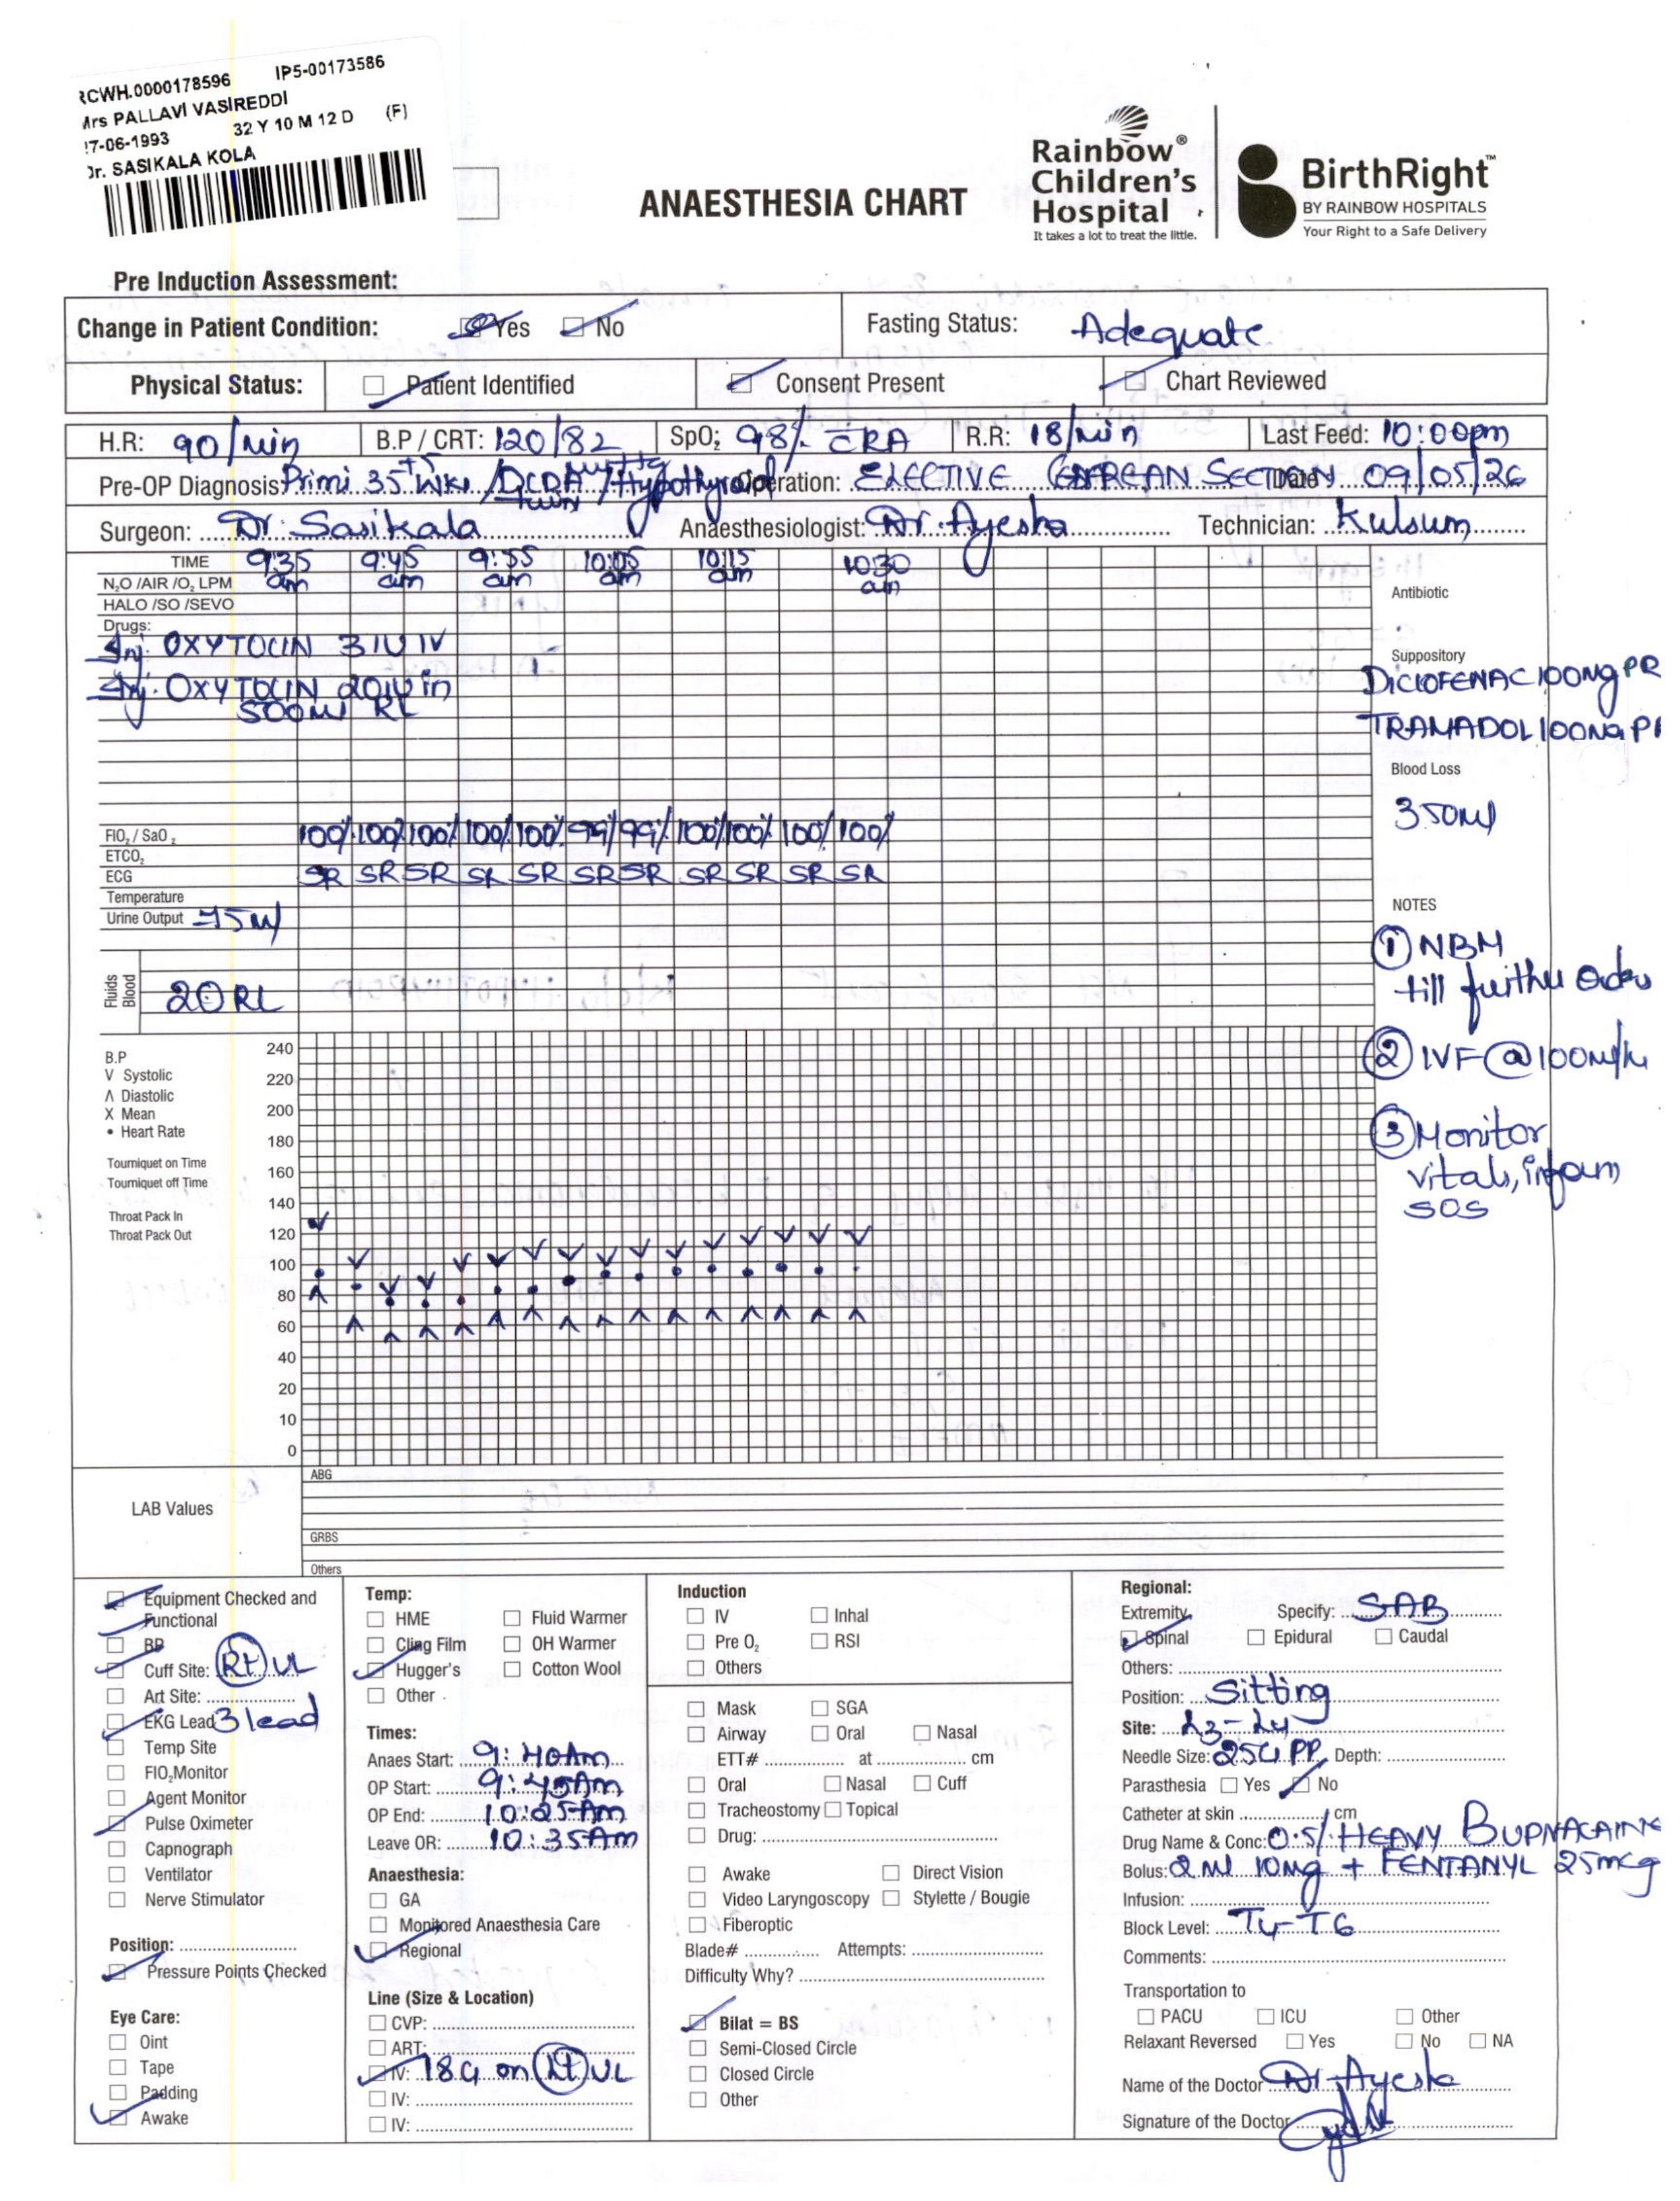 RCWH.0000178596 IP5-00173586
Mrs PALLAVI VASIREDDI
27-06-1993 32 Y 10 M 12 D (F)
Dr. SASIKALA KOLA
ANAESTHESIA CHART
Rainbow® Children's Hospital
It takes a lot to treat the little.
BirthRight™
BY RAINBOW HOSPITALS
Your Right to a Safe Delivery
Pre Induction Assessment:
Change in Patient Condition: Yes No Fasting Status: Adequate
Physical Status: Patient Identified Consent Present Chart Reviewed
H.R: 90/min B.P / CRT: 120/82 SpO2: 98% RA R.R: 18/min Last Feed: 10:00pm
Pre-OP Diagnosis: Primi 35+5 wks / DCDA Twin / Hypothyroid Operation: ELECTIVE SECTION Date 09/05/26
Surgeon: Dr. Sasikala Anaesthesiologist: Dr. Ayesha Technician: Kulsum
TIME 9:35 am 9:45 am 9:55 am 10:05 am 10:15 am 10:30 am
N2O /AIR /O2 LPM
HALO /SO /SEVO
Antibiotic
Drugs:
Inj. OXYTOCIN 3 IU IV
Inj. OXYTOCIN 20 IU in
500ml RL
Suppository
DICLOFENAC 100mg PR
TRAMADOL 100mg PR
Blood Loss
350ml
FIO2 / SaO2 100% 100% 100% 100% 100% 99% 99% 100% 100% 100% 100%
ETCO2
ECG SR SR SR SR SR SR SR SR SR SR SR
Temperature
Urine Output 75ml
Fluids Blood RL
NOTES
① NBM
till further orders
② IVF @ 100ml/hr
③ Monitor
vitals, inform
SOS
B.P
V Systolic
Λ Diastolic
X Mean
• Heart Rate
Tourniquet on Time
Tourniquet off Time
Throat Pack In
Throat Pack Out
240
220
200
180
160
140
120
100
80
60
40
20
10
0
LAB Values
ABG
GRBS
Others
Equipment Checked and Functional
BP
Cuff Site: Rt UL
Art Site:
EKG Lead 3 lead
Temp Site
FIO2 Monitor
Agent Monitor
Pulse Oximeter
Capnograph
Ventilator
Nerve Stimulator
Position:
Pressure Points Checked
Eye Care:
Oint
Tape
Padding
Awake
Temp:
HME Fluid Warmer
Cling Film OH Warmer
Hugger's Cotton Wool
Other
Times:
Anaes Start: 9:40Am
OP Start: 9:45Am
OP End: 10:25Am
Leave OR: 10:35Am
Anaesthesia:
GA
Monitored Anaesthesia Care
Regional
Line (Size & Location)
CVP:
ART:
IV: 18G on Lt UL
IV:
IV:
Induction
IV Inhal
Pre O2 RSI
Others
Mask SGA
Airway Oral Nasal
ETT# at cm
Oral Nasal Cuff
Tracheostomy Topical
Drug:
Awake Direct Vision
Video Laryngoscopy Stylette / Bougie
Fiberoptic
Blade# Attempts:
Difficulty Why?
Bilat = BS
Semi-Closed Circle
Closed Circle
Other
Regional:
Extremity Specify: SAB
Spinal Epidural Caudal
Others:
Position: Sitting
Site: L3-L4
Needle Size: 25G PP Depth:
Parasthesia Yes No
Catheter at skin cm
Drug Name & Conc: 0.5% HEAVY
Bolus: 2 ml 10mg + FENTANYL 25mcg
Infusion:
Block Level: T4-T6
Comments:
Transportation to
PACU ICU Other
Relaxant Reversed Yes No NA
Name of the Doctor Dr. Ayesha
Signature of the Doctor